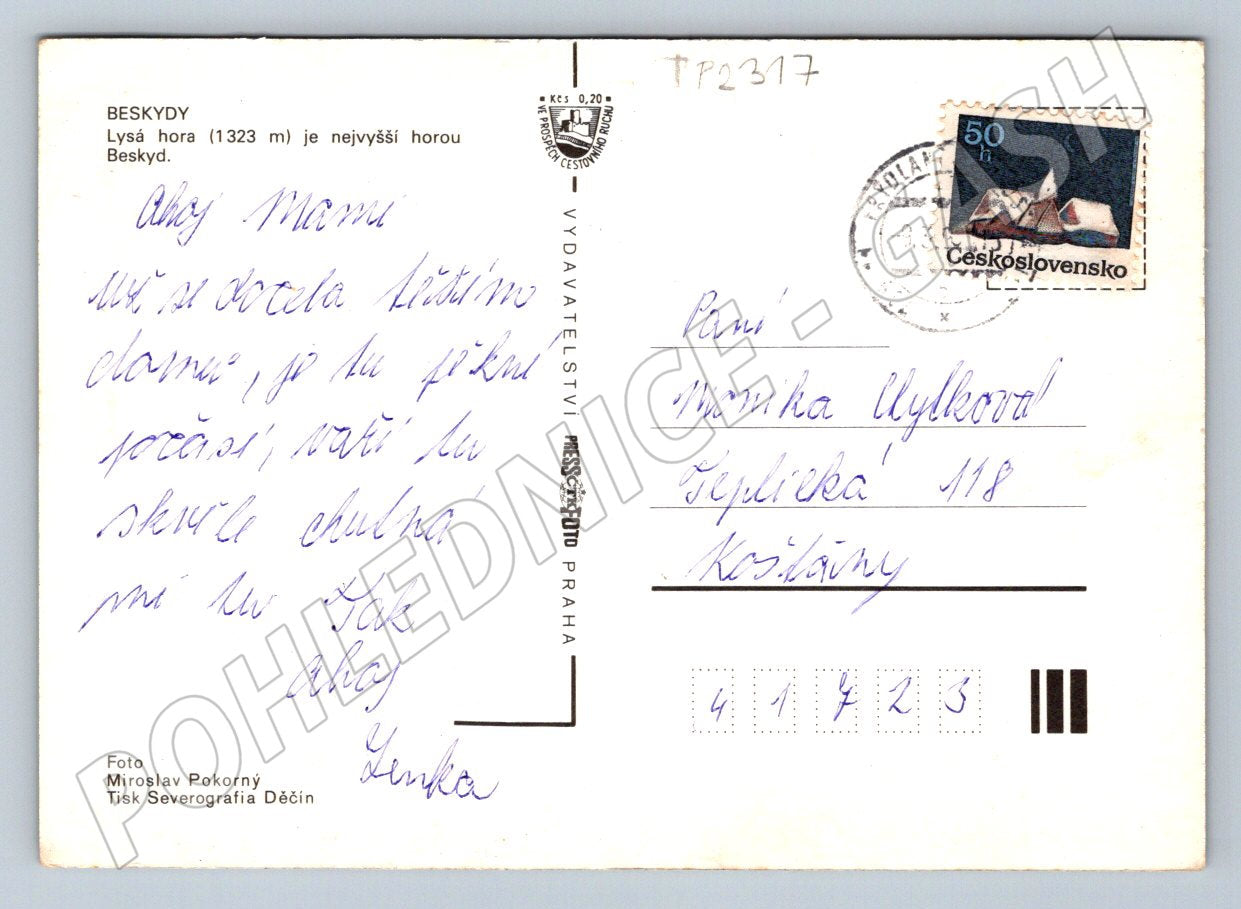 TP2317
BESKYDY
Lysá hora (1323 m) je nejvyšší horou
Beskyd.
Kčs 0,20
VE PROSPĚCH CESTOVNÍHO RUCHU
Ahoj Mami
už se docela těším
domů, je tu pěkné
počasí, vaří tu
skvěle chutná
mi tu Tak
Ahoj
Lenka
Foto
Miroslav Pokorný
Tisk Severografia Děčín
VYDAVATELSTVÍ PRESSFOTO PRAHA
50
h
Československo
Paní
Monika
Teplická 118
Košťany
41723
POHLEDNICE - GASH